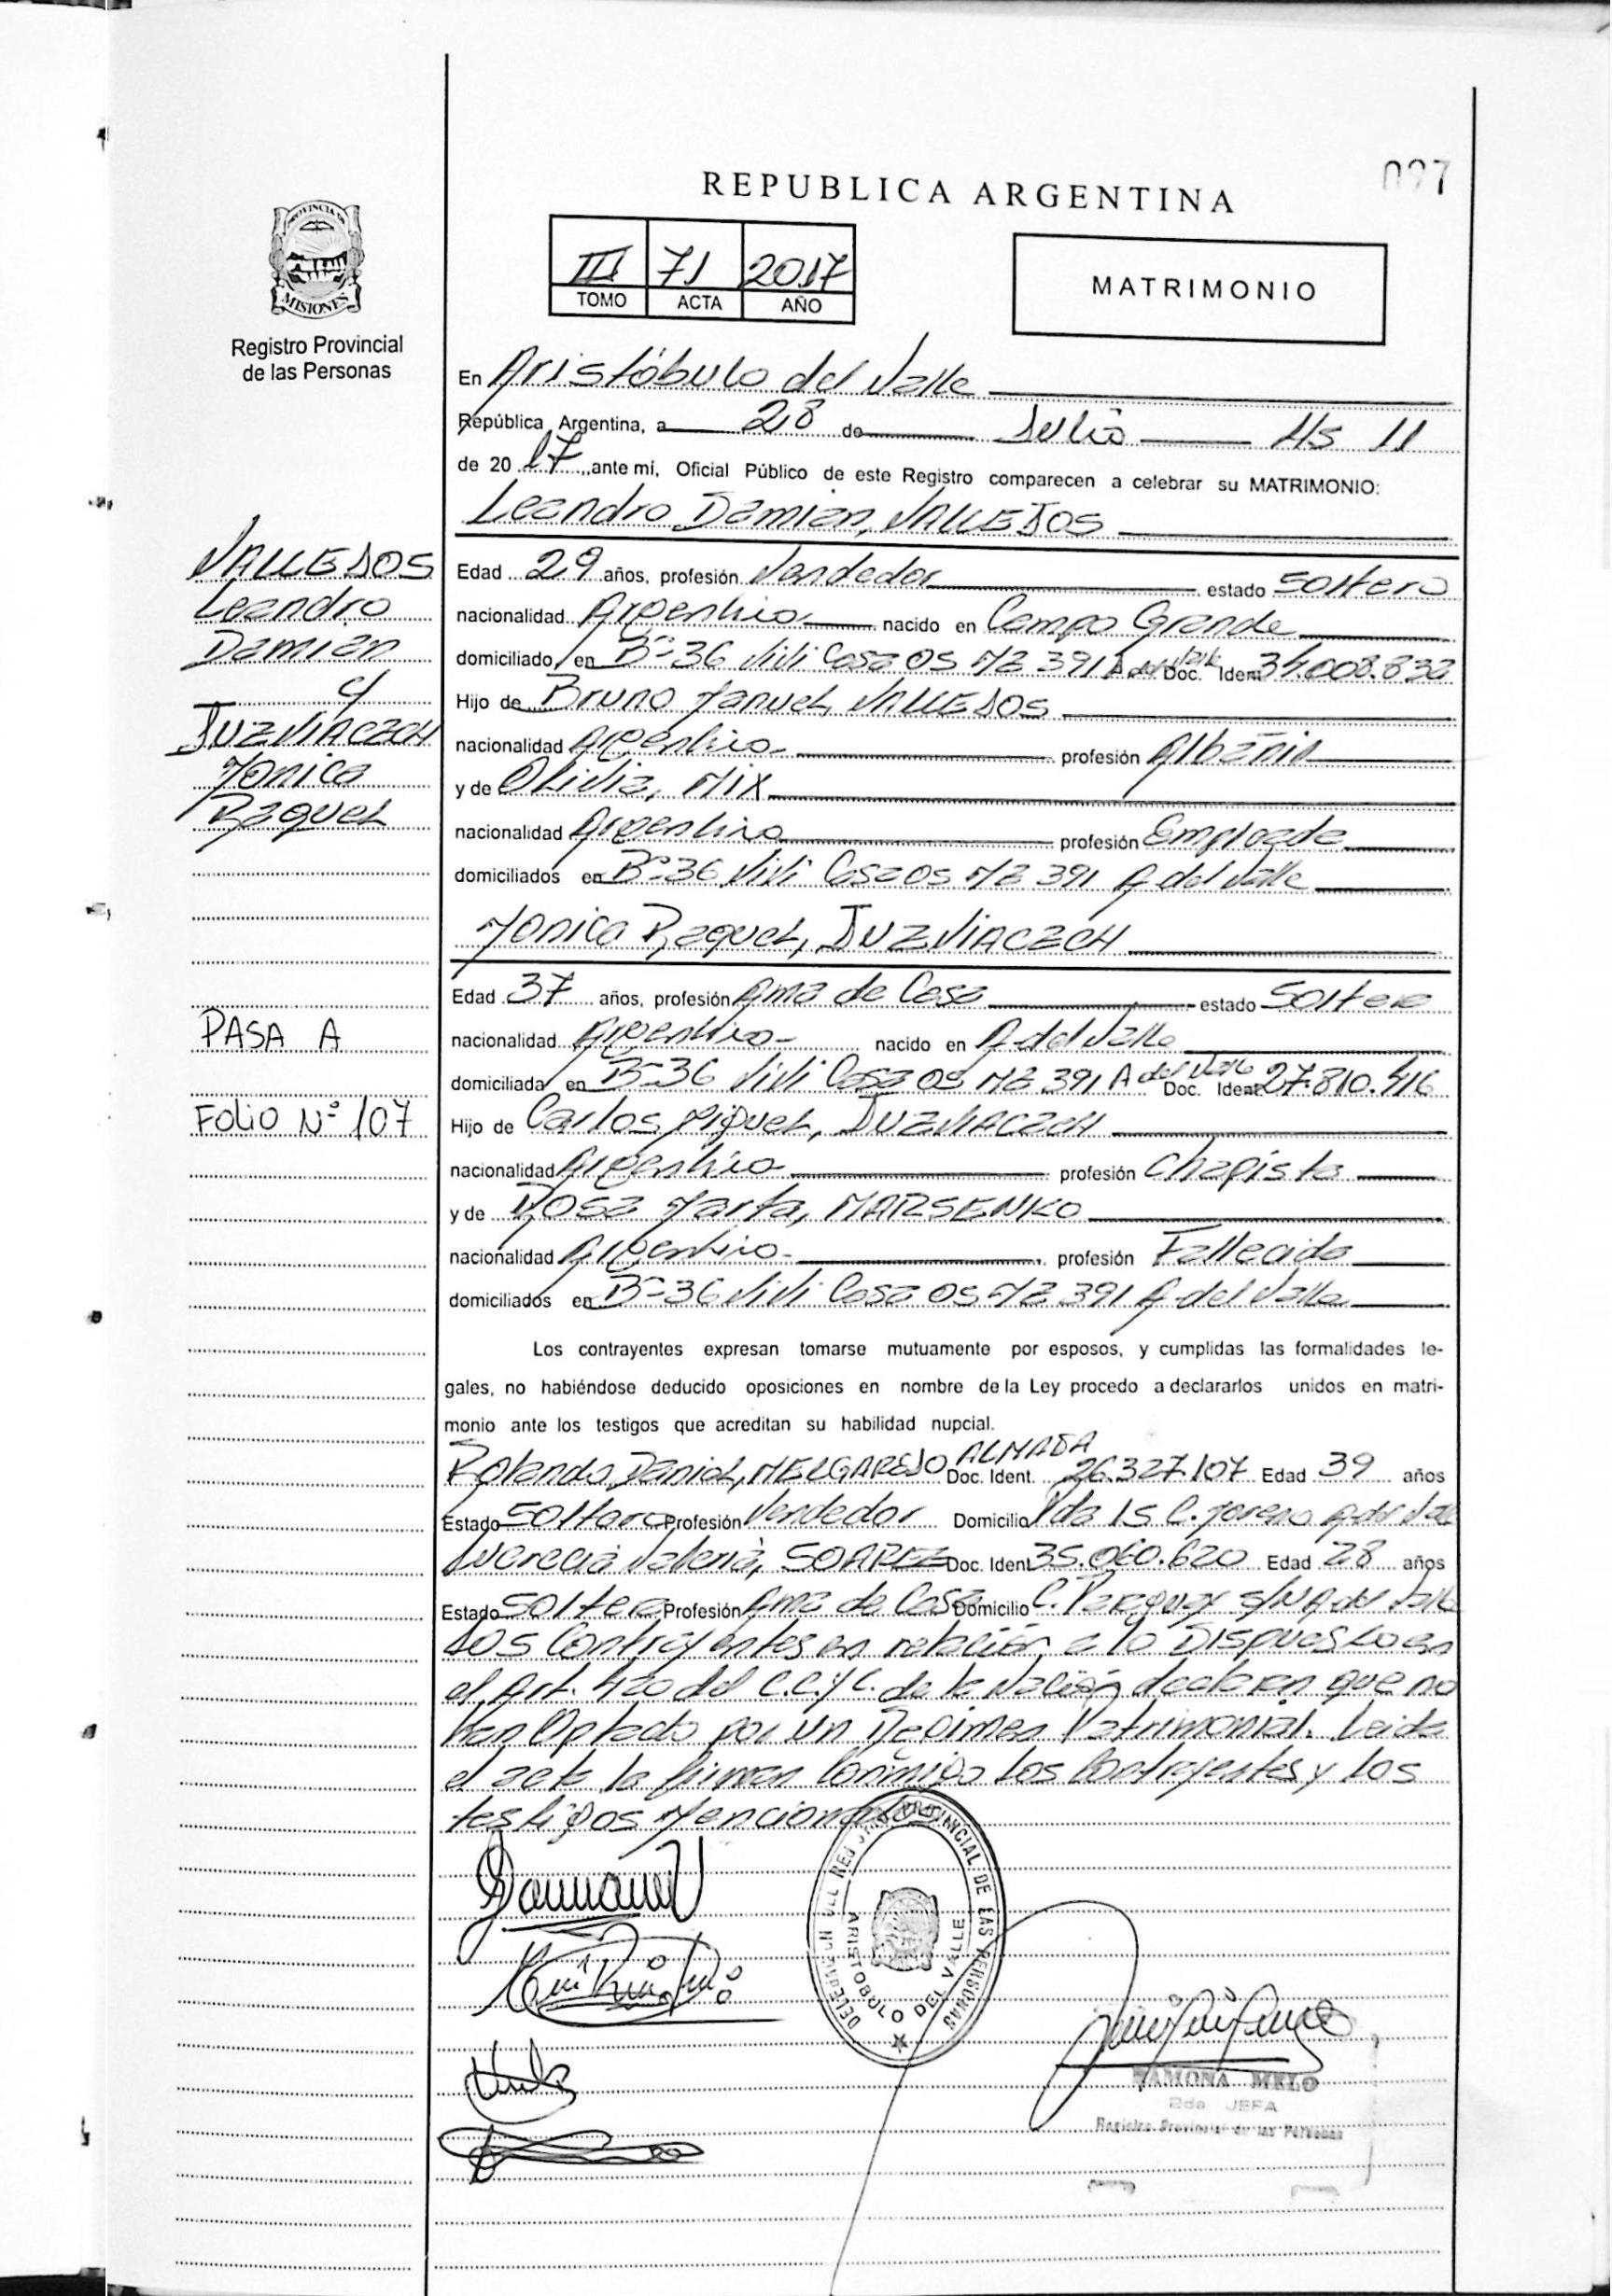 097
REPUBLICA ARGENTINA
PROVINCIA DE
MISIONES
Registro Provincial
de las Personas
III 71 2017
TOMO ACTA AÑO
MATRIMONIO
En Aristóbulo del Valle
República Argentina, a 28 de Julio Hs 11
de 20 17 ante mi, Oficial Público de este Registro comparecen a celebrar su MATRIMONIO:
Leandro Damian, VALLEJOS
VALLEJOS
Leandro
Damian
c/
JUZVIACZCH
Monica
Raquel
Edad 29 años, profesión Vendedor estado Soltero
nacionalidad Argentino nacido en Campo Grande
domiciliado en B°-36 ViVi Casa 05 MZ 391 A del Valle Doc. Ident 34.008.832
Hijo de Bruno Manuel, VALLEJOS
nacionalidad Argentino profesión Albañil
y de Olivia, MIX
nacionalidad Argentina profesión Empleada
domiciliados en B°-36 ViVi Casa 05 MZ 391 A del Valle
Monica Raquel, JUZVIACZCH
Edad 37 años, profesión Ama de Casa estado Soltera
PASA A
nacionalidad Argentina nacido en A del Valle
domiciliada en B°-36 ViVi Casa 05 MZ 391 A del Valle Doc. Ident 27.810.416
FOLIO N° 107
Hijo de Carlos Miguel, JUZVIACZCH
nacionalidad Argentino profesión Chapista
y de Rosa Marta, MARSENKO
nacionalidad Argentina profesión Fallecida
domiciliados en B°-36 ViVi Casa 05 MZ 391 A del Valle
Los contrayentes expresan tomarse mutuamente por esposos, y cumplidas las formalidades le-
gales, no habiéndose deducido oposiciones en nombre de la Ley procedo a declararlos unidos en matri-
monio ante los testigos que acreditan su habilidad nupcial.
Rolando Daniel, MELGAREJO ALMADA Doc. Ident. 26.327.107 Edad 39 años
Estado Soltero Profesión Vendedor Domicilio Pda 15 C. Moreno A del Valle
Lucrecia Valeria, SOAREZ Doc. Ident 35.060.620 Edad 28 años
Estado Soltera Profesión Ama de Casa Domicilio C. Paraguay S/N A del Valle
Los Contrayentes en relación a lo Dispuesto en
el Art. 420 del C.C.y C. de la Nación declaran que no
han Optado por un Regimen Patrimonial. Leida
el acta la firman Conmigo los Contrayentes y los
testigos Mencionados
DELEGACION DEL REGISTRO PROVINCIAL DE LAS PERSONAS
ARISTOBULO DEL VALLE
RAMONA MELO
2da JEFA
Registro Provincial de las Personas